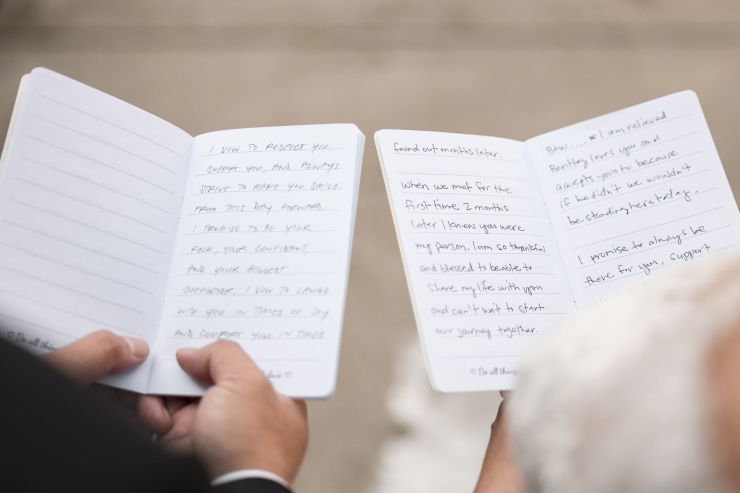 I VOW TO RESPECT YOU,
SUPPORT YOU, AND ALWAYS
STRIVE TO MAKE YOU SMILE.
FROM THIS DAY FORWARD,
I PROMISE TO BE YOUR
ROCK, YOUR CONFIDANT,
AND YOUR BIGGEST
SUPPORTER. I VOW TO LAUGH
WITH YOU IN TIMES OF JOY
AND COMFORT YOU IN TIMES
Do all
love
found out months later.
when we met for the
first time 2 months
later I knew you were
my person. I am so thankful
and blessed to be able to
share my life with you
and can't wait to start
our journey together.
Do all things
Btw.... I am relieved
Bentley loves you and
accepts you to because
if he didn't we wouldn't
be standing here today.
I promise to always be
there for you, support